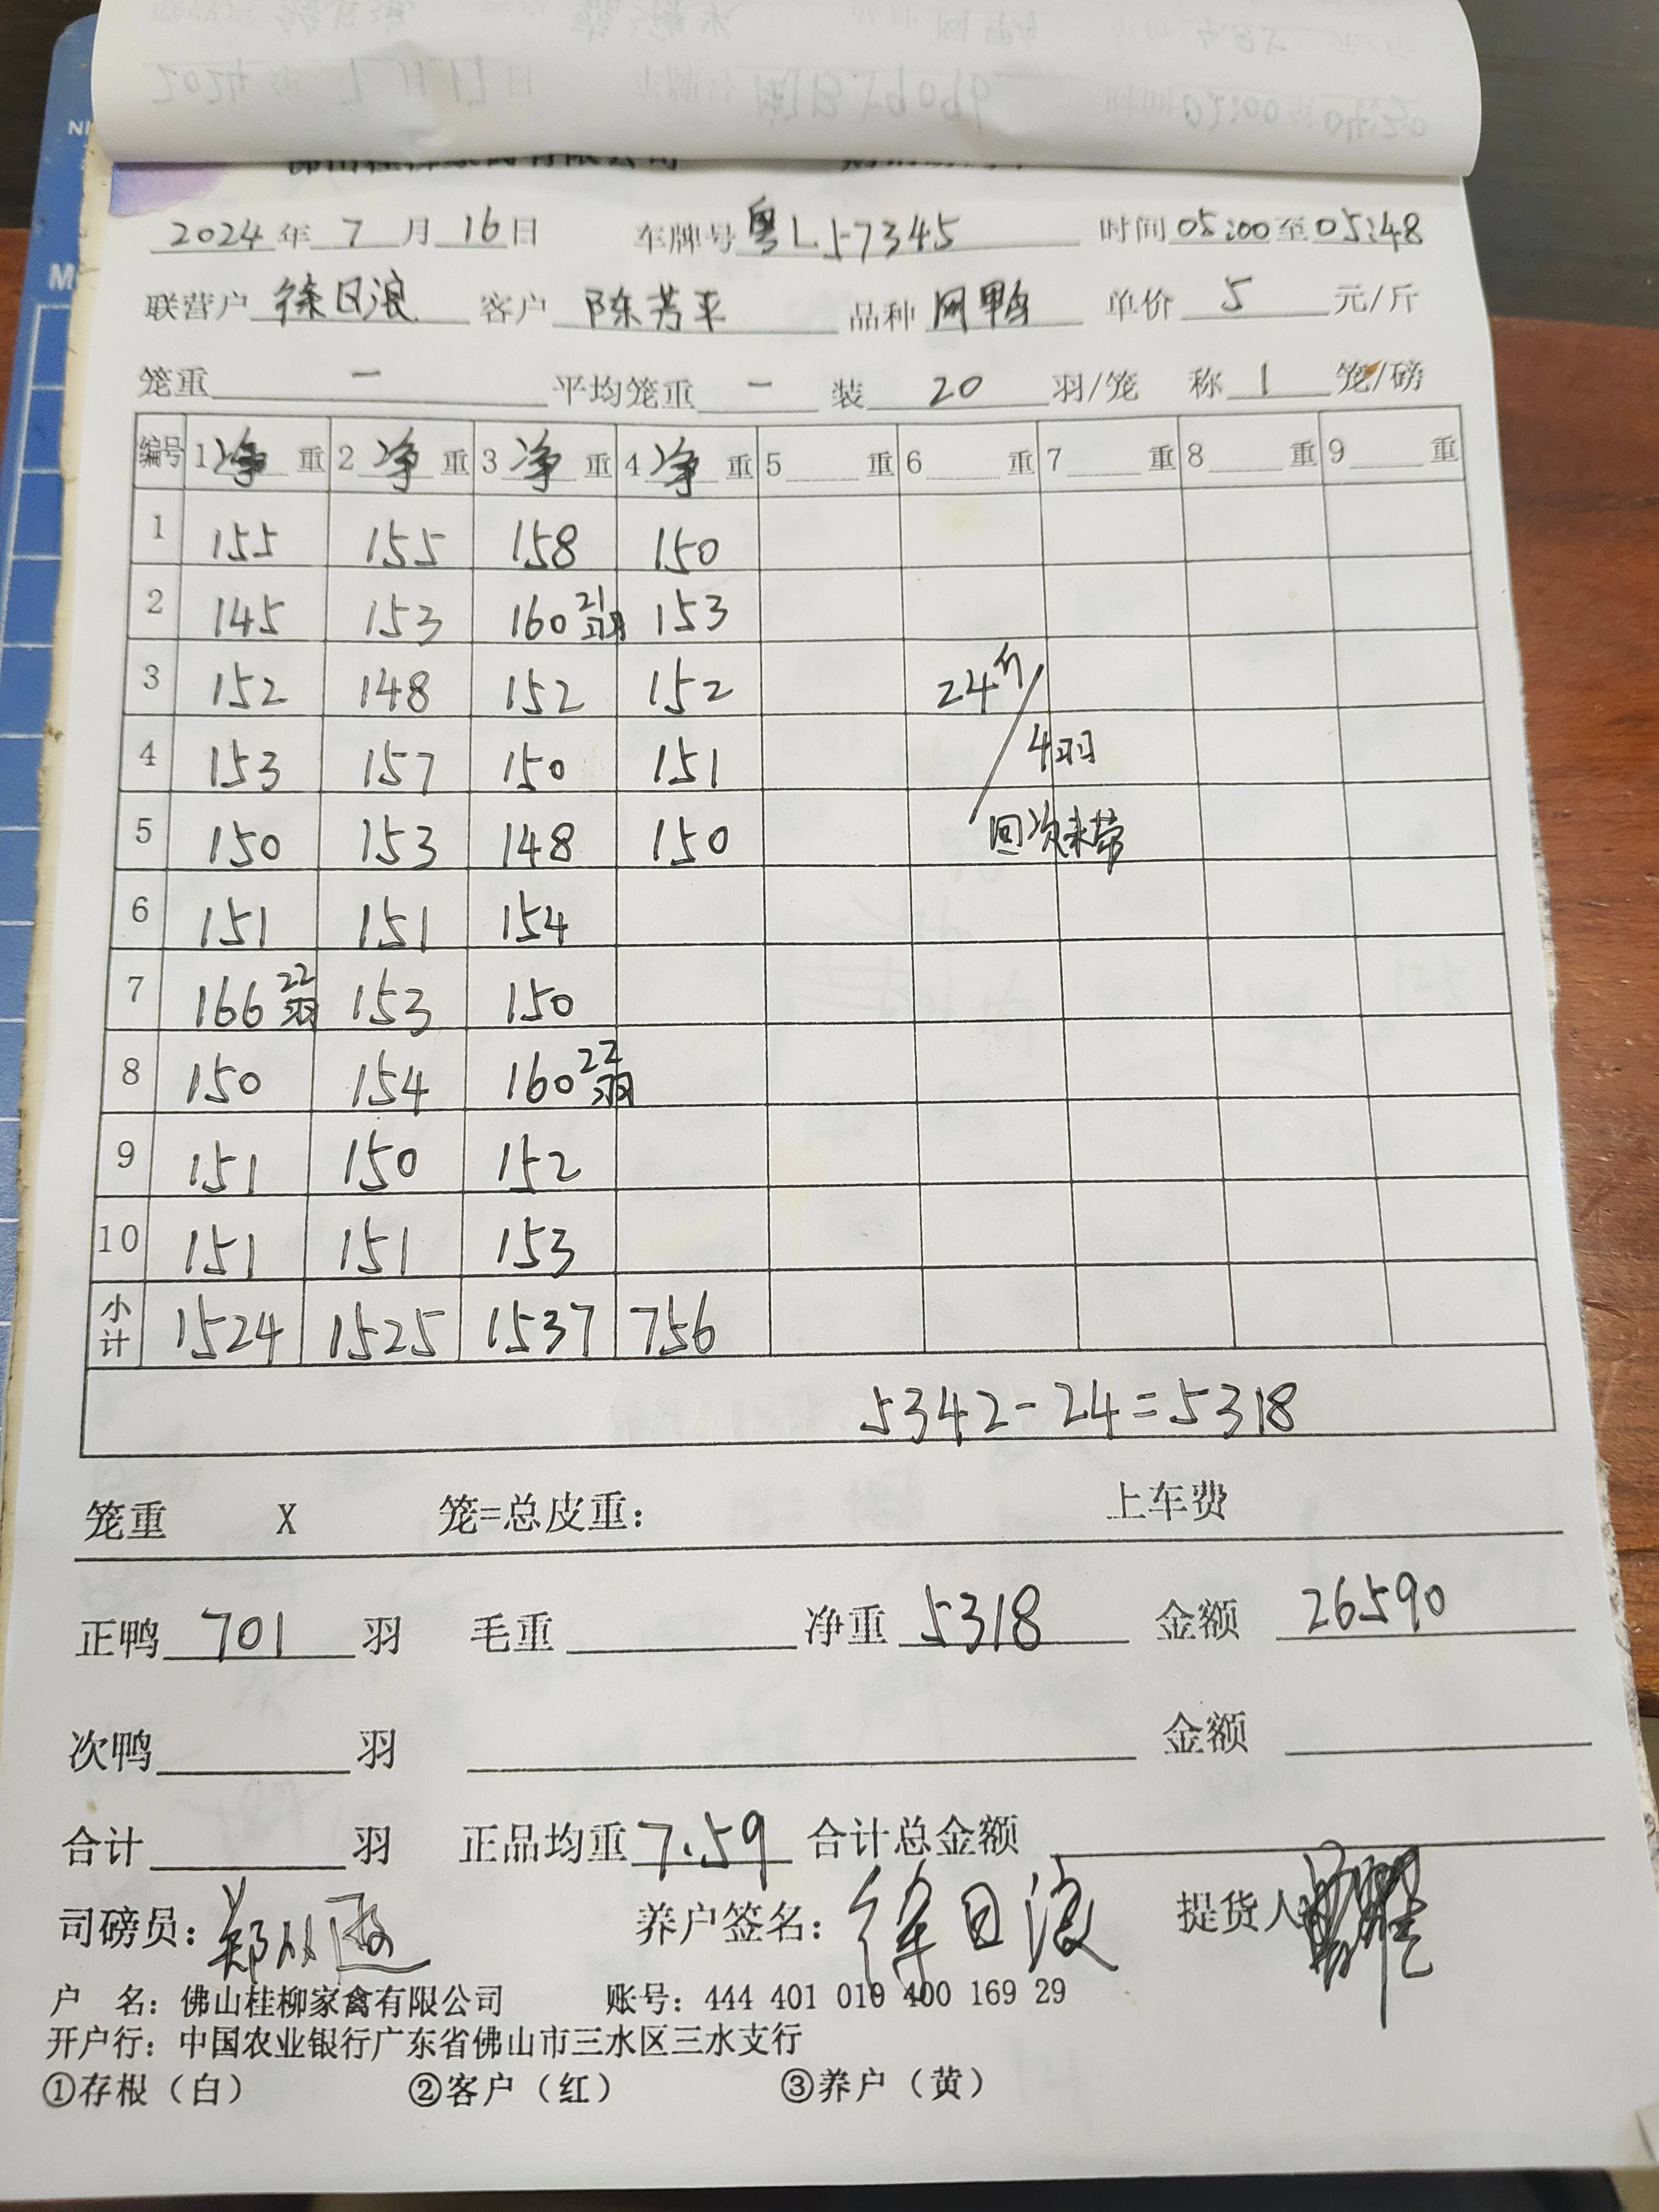 2024年 7 月 16 日 车牌号 粤L57345 时间 05:00 至 05:48
联营户 徐日浪 客户 陈芳平 品种 网鸭 单价 5 元/斤
笼重 一 平均笼重 一 装 20 羽/笼 称 1 笼/磅
编号 1 净 重 2 净 重 3 净 重 4 净 重 5 重 6 重 7 重 8 重 9 重
1 155 155 158 150
2 145 153 160 21羽 153
3 152 148 152 152 24斤/
4 153 157 150 151 4羽
5 150 153 148 150 回次未带
6 151 151 154
7 166 22羽 153 150
8 150 154 160 22羽
9 151 150 152
10 151 151 153
小计 1524 1525 1537 756
5342-24=5318
笼重 X 笼=总皮重: 上车费
正鸭 701 羽 毛重 净重 5318 金额 26590
次鸭 羽 金额
合计 羽 正品均重 7.59 合计总金额
司磅员: 养户签名: 徐日浪 提货人
户 名: 佛山桂柳家禽有限公司 账号: 444 401 010 400 169 29
开户行: 中国农业银行广东省佛山市三水区三水支行
①存根（白） ②客户（红） ③养户（黄）